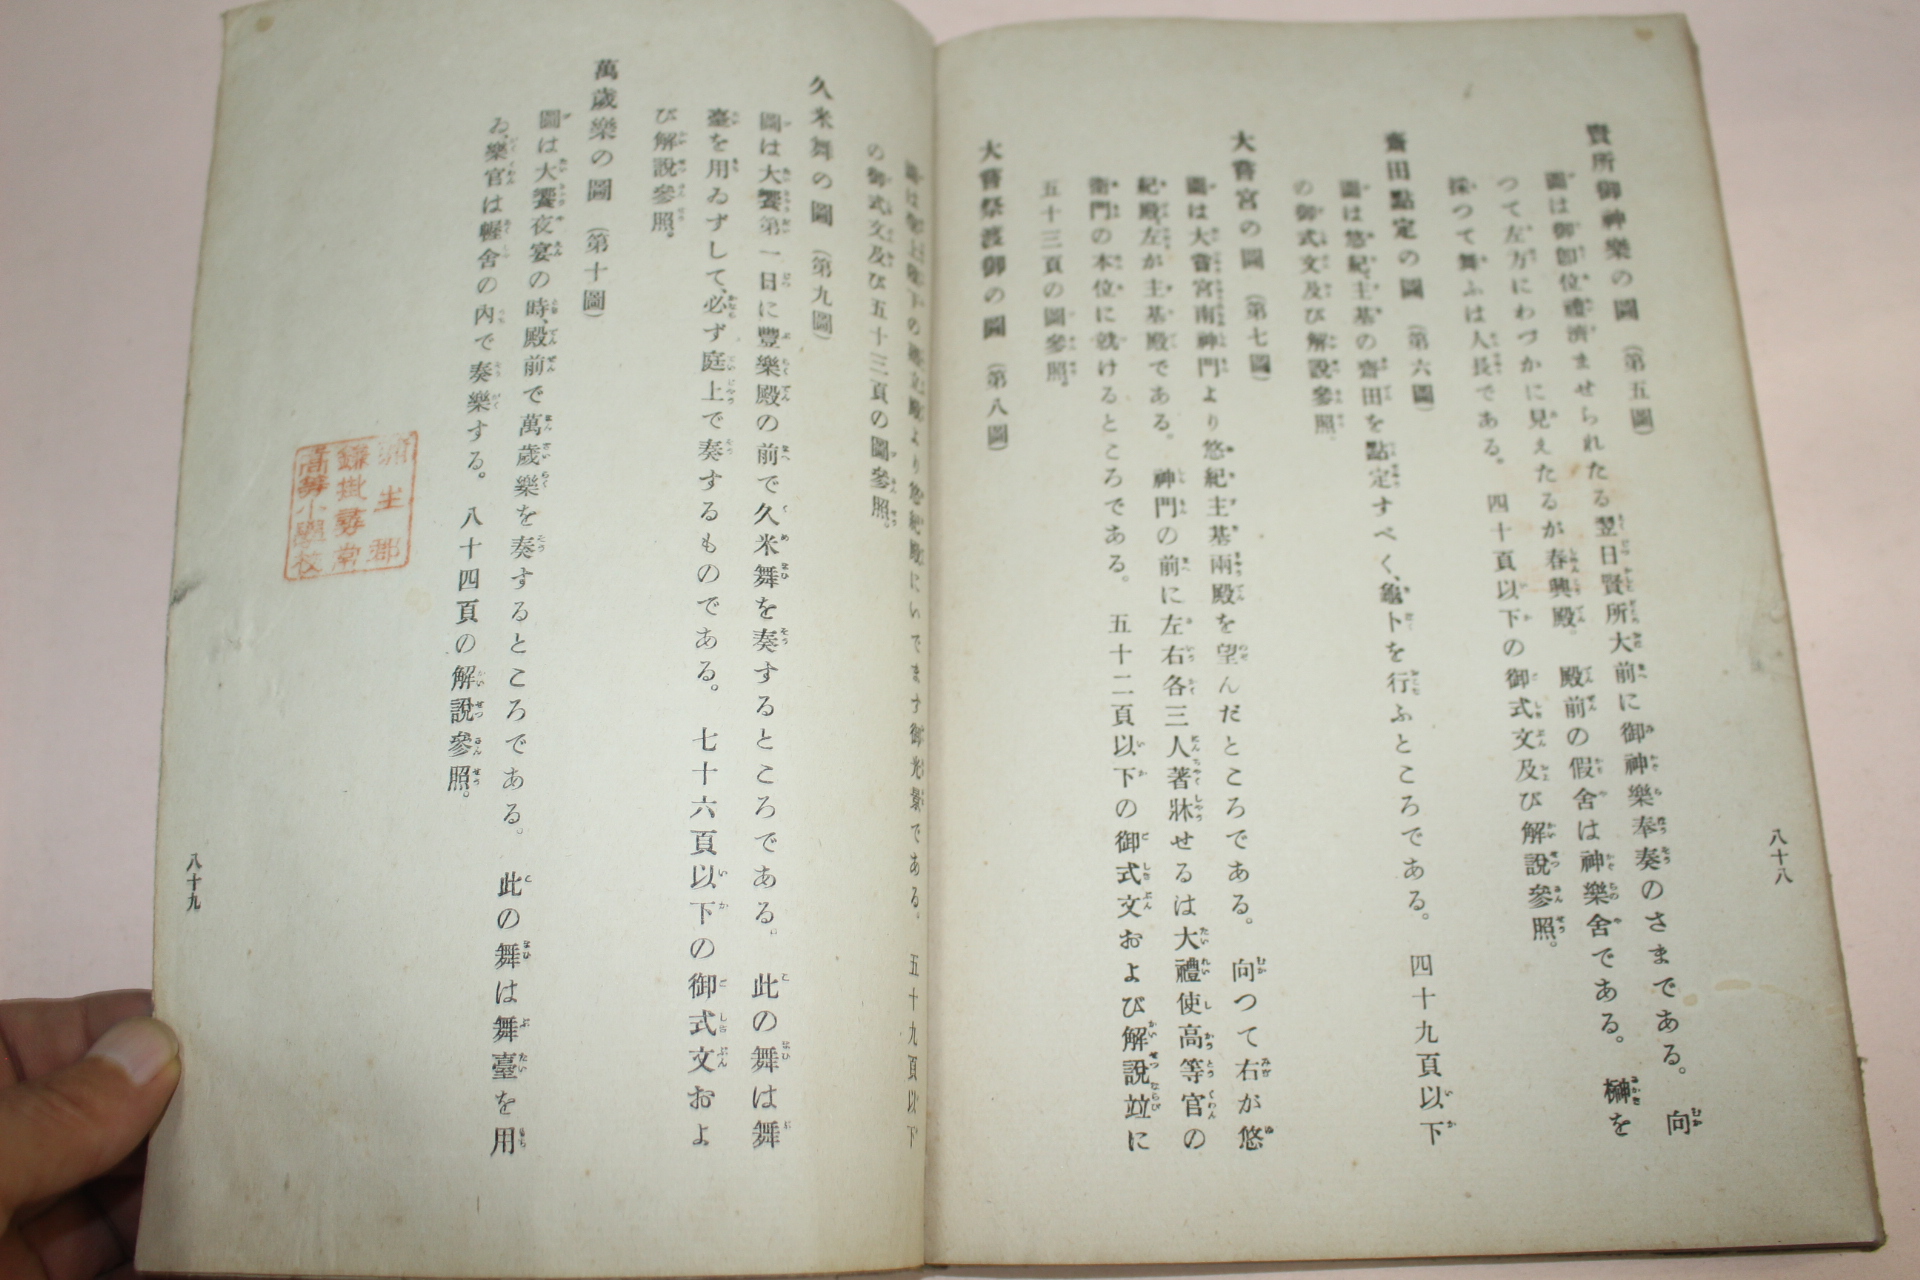 賢所御神樂の圖 (第五圖)
圖は御卽位禮濟ませられたる翌日賢所大前に御神樂奉奏のさまである。 向
つて左方にわづかに見えたるが春興殿、 殿前の假舍は神樂舍である。 榊を
採つて舞ふは人長である。 四十頁以下の御式文及び解說參照。
齋田點定の圖 (第六圖)
圖は悠紀、主基の齋田を點定すべく、龜卜を行ふところである。 四十九頁以下
の御式文及び解說參照。
大嘗宮の圖 (第七圖)
圖は大嘗宮南神門より悠紀主基兩殿を望んだところである。 向つて右が悠
紀殿、左が主基殿である。 神門の前に左右各三人著牀せるは大禮使高等官の
衞門の本位に就けるところである。 五十二頁以下の御式文および解說竝に
五十三頁の圖參照。
大嘗祭渡御の圖 (第八圖)
より悠紀殿にいでます御光景である。 五十九頁以下
の御式文及び五十三頁の圖參照。
八十八
久米舞の圖 (第九圖)
圖は大饗第一日に豐樂殿の前で久米舞を奏するところである。 此の舞は舞
臺を用ゐずして、必ず庭上で奏するものである。 七十六頁以下の御式文およ
び解說參照。
萬歲樂の圖 (第十圖)
圖は大饗夜宴の時、殿前で萬歲樂を奏するところである。 此の舞は舞臺を用
ゐ、樂官は幄舍の內で奏樂する。 八十四頁の解說參照。
蒲生郡
鎌掛尋常
高等小學校
八十九